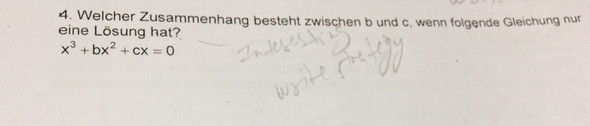 4. Welcher Zusammenhang besteht zwischen b und c, wenn folgende Gleichung nur
eine Lösung hat?
x³ + bx² + cx = 0
Interesting
write strategy